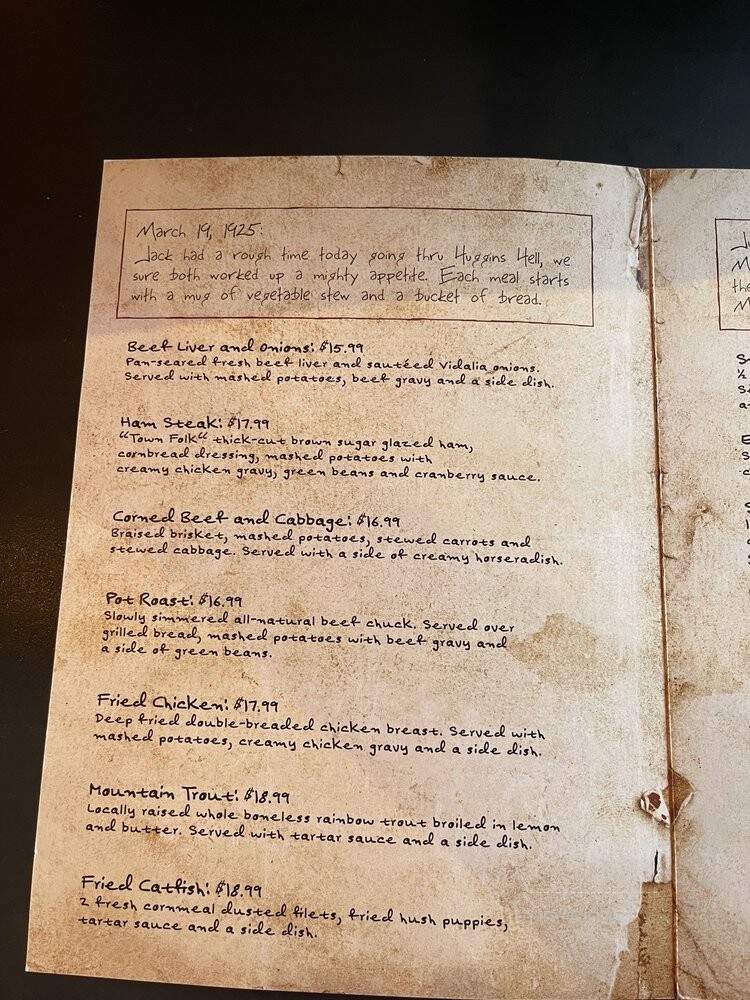 March 19, 1925:
Jack had a rough time today going thru Huggins Hell, we
sure both worked up a mighty appetite. Each meal starts
with a mug of vegetable stew and a bucket of bread.
Beef Liver and Onions: $15.99
Pan-seared fresh beef liver and sautéed Vidalia onions.
Served with mashed potatoes, beef gravy and a side dish.
Ham Steak: $17.99
“Town Folk“ thick-cut brown sugar glazed ham,
cornbread dressing, mashed potatoes with
creamy chicken gravy, green beans and cranberry sauce.
Corned Beef and Cabbage: $16.99
Braised brisket, mashed potatoes, stewed carrots and
stewed cabbage. Served with a side of creamy horseradish.
Pot Roast: $16.99
Slowly simmered all-natural beef chuck. Served over
grilled bread, mashed potatoes with beef gravy and
a side of green beans.
Fried Chicken: $17.99
Deep fried double-breaded chicken breast. Served with
mashed potatoes, creamy chicken gravy and a side dish.
Mountain Trout: $18.99
Locally raised whole boneless rainbow trout broiled in lemon
and butter. Served with tartar sauce and a side dish.
Fried Catfish: $18.99
2 fresh cornmeal dusted filets, fried hush puppies,
tartar sauce and a side dish.